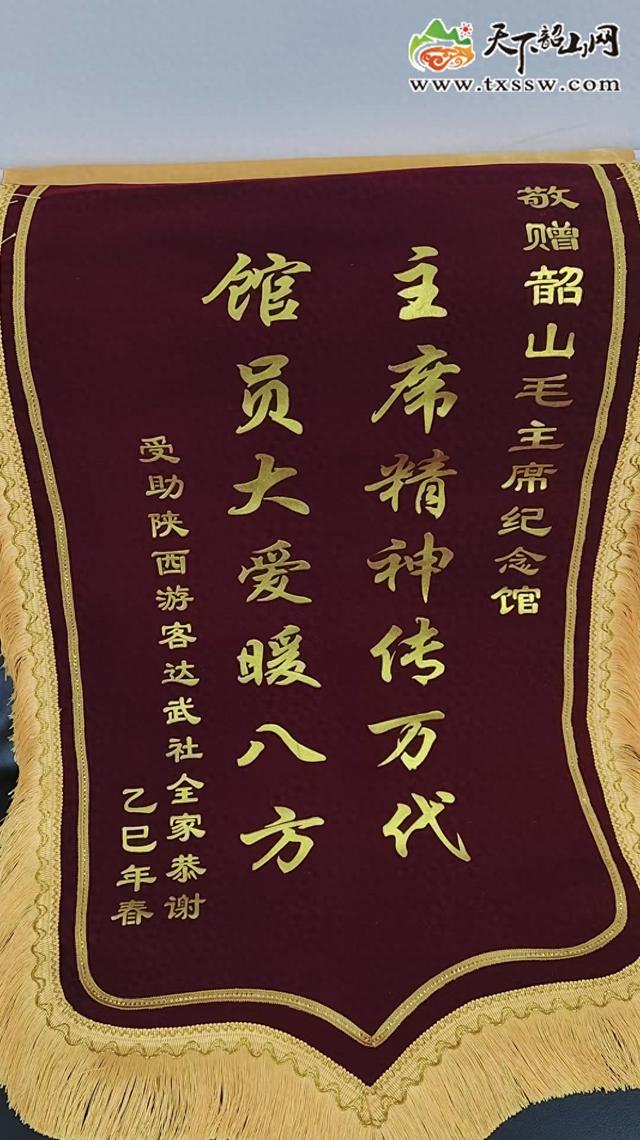 天下韶山网
www.txssw.com
敬赠韶山毛主席纪念馆
主席精神传万代
馆员大爱暖八方
受助陕西游客达武社全家恭谢
乙巳年春